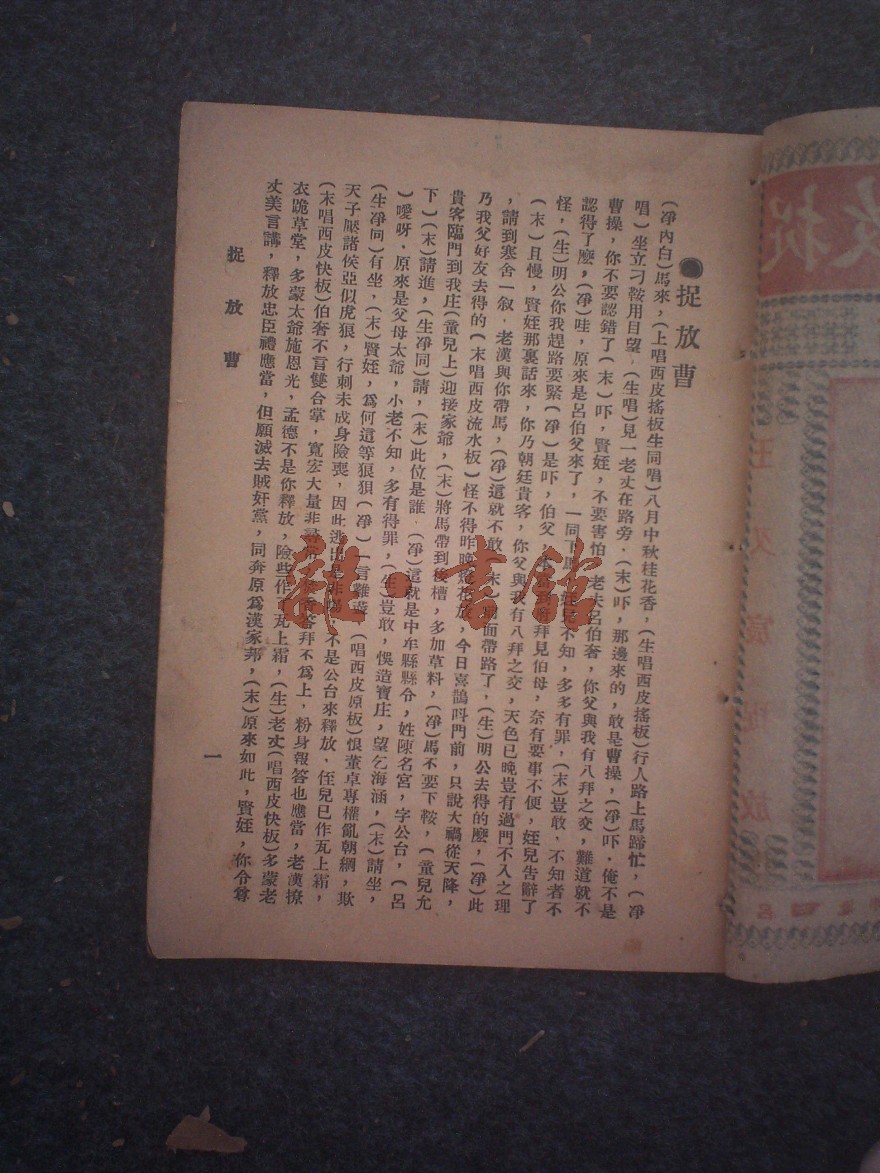 捉放曹
(凈內白)馬來，(上唱西皮搖板生同唱)八月中秋桂花香，(生唱西皮搖板)行人路上馬蹄忙，(凈
唱)坐立刁鞍用目望．(生唱)見一老丈在路旁．(末)吓，那邊來的，敢是曹操，(凈)吓．俺不是
曹操，你不要認錯了(末)吓，賢姪，不要害怕，老夫呂伯奢，你父與我有八拜之交，難道就不
認得了麽，(凈)哇，原來是呂伯父來了，一同下馬，不知，多多有罪，(末)豈敢．不知者不
怪，(生)明公你我趕路要緊(凈)是吓，伯父，拜見伯母，奈有要事不便，姪兒告辭了
(末)且慢，賢姪那裏話來，你乃朝廷貴客，你父與我有八拜之交，天色已晚豈有過門不入之理
，請到寒舍一叙．老漢與你帶馬，(凈)這就不敢(末)前面帶路了，(生)明公去得的麽，(凈)此
乃我父好友去得的(末唱西皮流水板)怪不得昨晚燈花放，今日喜鵲叫門前，只說大禍從天降，
貴客臨門到我庄(童兒上)迎接家爺，(末)將馬帶到後槽，多加草料，(凈)馬不要下鞍，(童兒允
下)(末)請進，(生凈同)請，(末)此位是誰．(凈)這就是中牟縣縣令，姓陳名宮，字公台，(呂
)噯呀．原來是父母太爺，小老不知，多有得罪，(生)豈敢，悞造寶庄，望乞海涵，(末)請坐，
(生凈同)有坐，(末)賢姪，爲何這等狼狽(凈)一言難盡(唱西皮原板)恨董卓專權亂朝綱，欺
天子壓諸侯亞似虎狼，行刺未成身險喪，因此逃出是非場，不是公台來釋放．侄兒已作瓦上霜，
(末唱西皮快板)伯奢不言雙合掌，寬宏大量非答拜不爲上，粉身報答也應當，老漢撩
衣跪草堂，多蒙太爺施恩光，孟德不是你釋放，險些作瓦上霜，(生)老丈(唱西皮快板)多蒙老
丈美言講，釋放忠臣禮應當，但願滅去賊奸黨，同奔原爲漢家邦，(末)原來如此，賢姪，你令尊
捉放曹
一
雜·書館